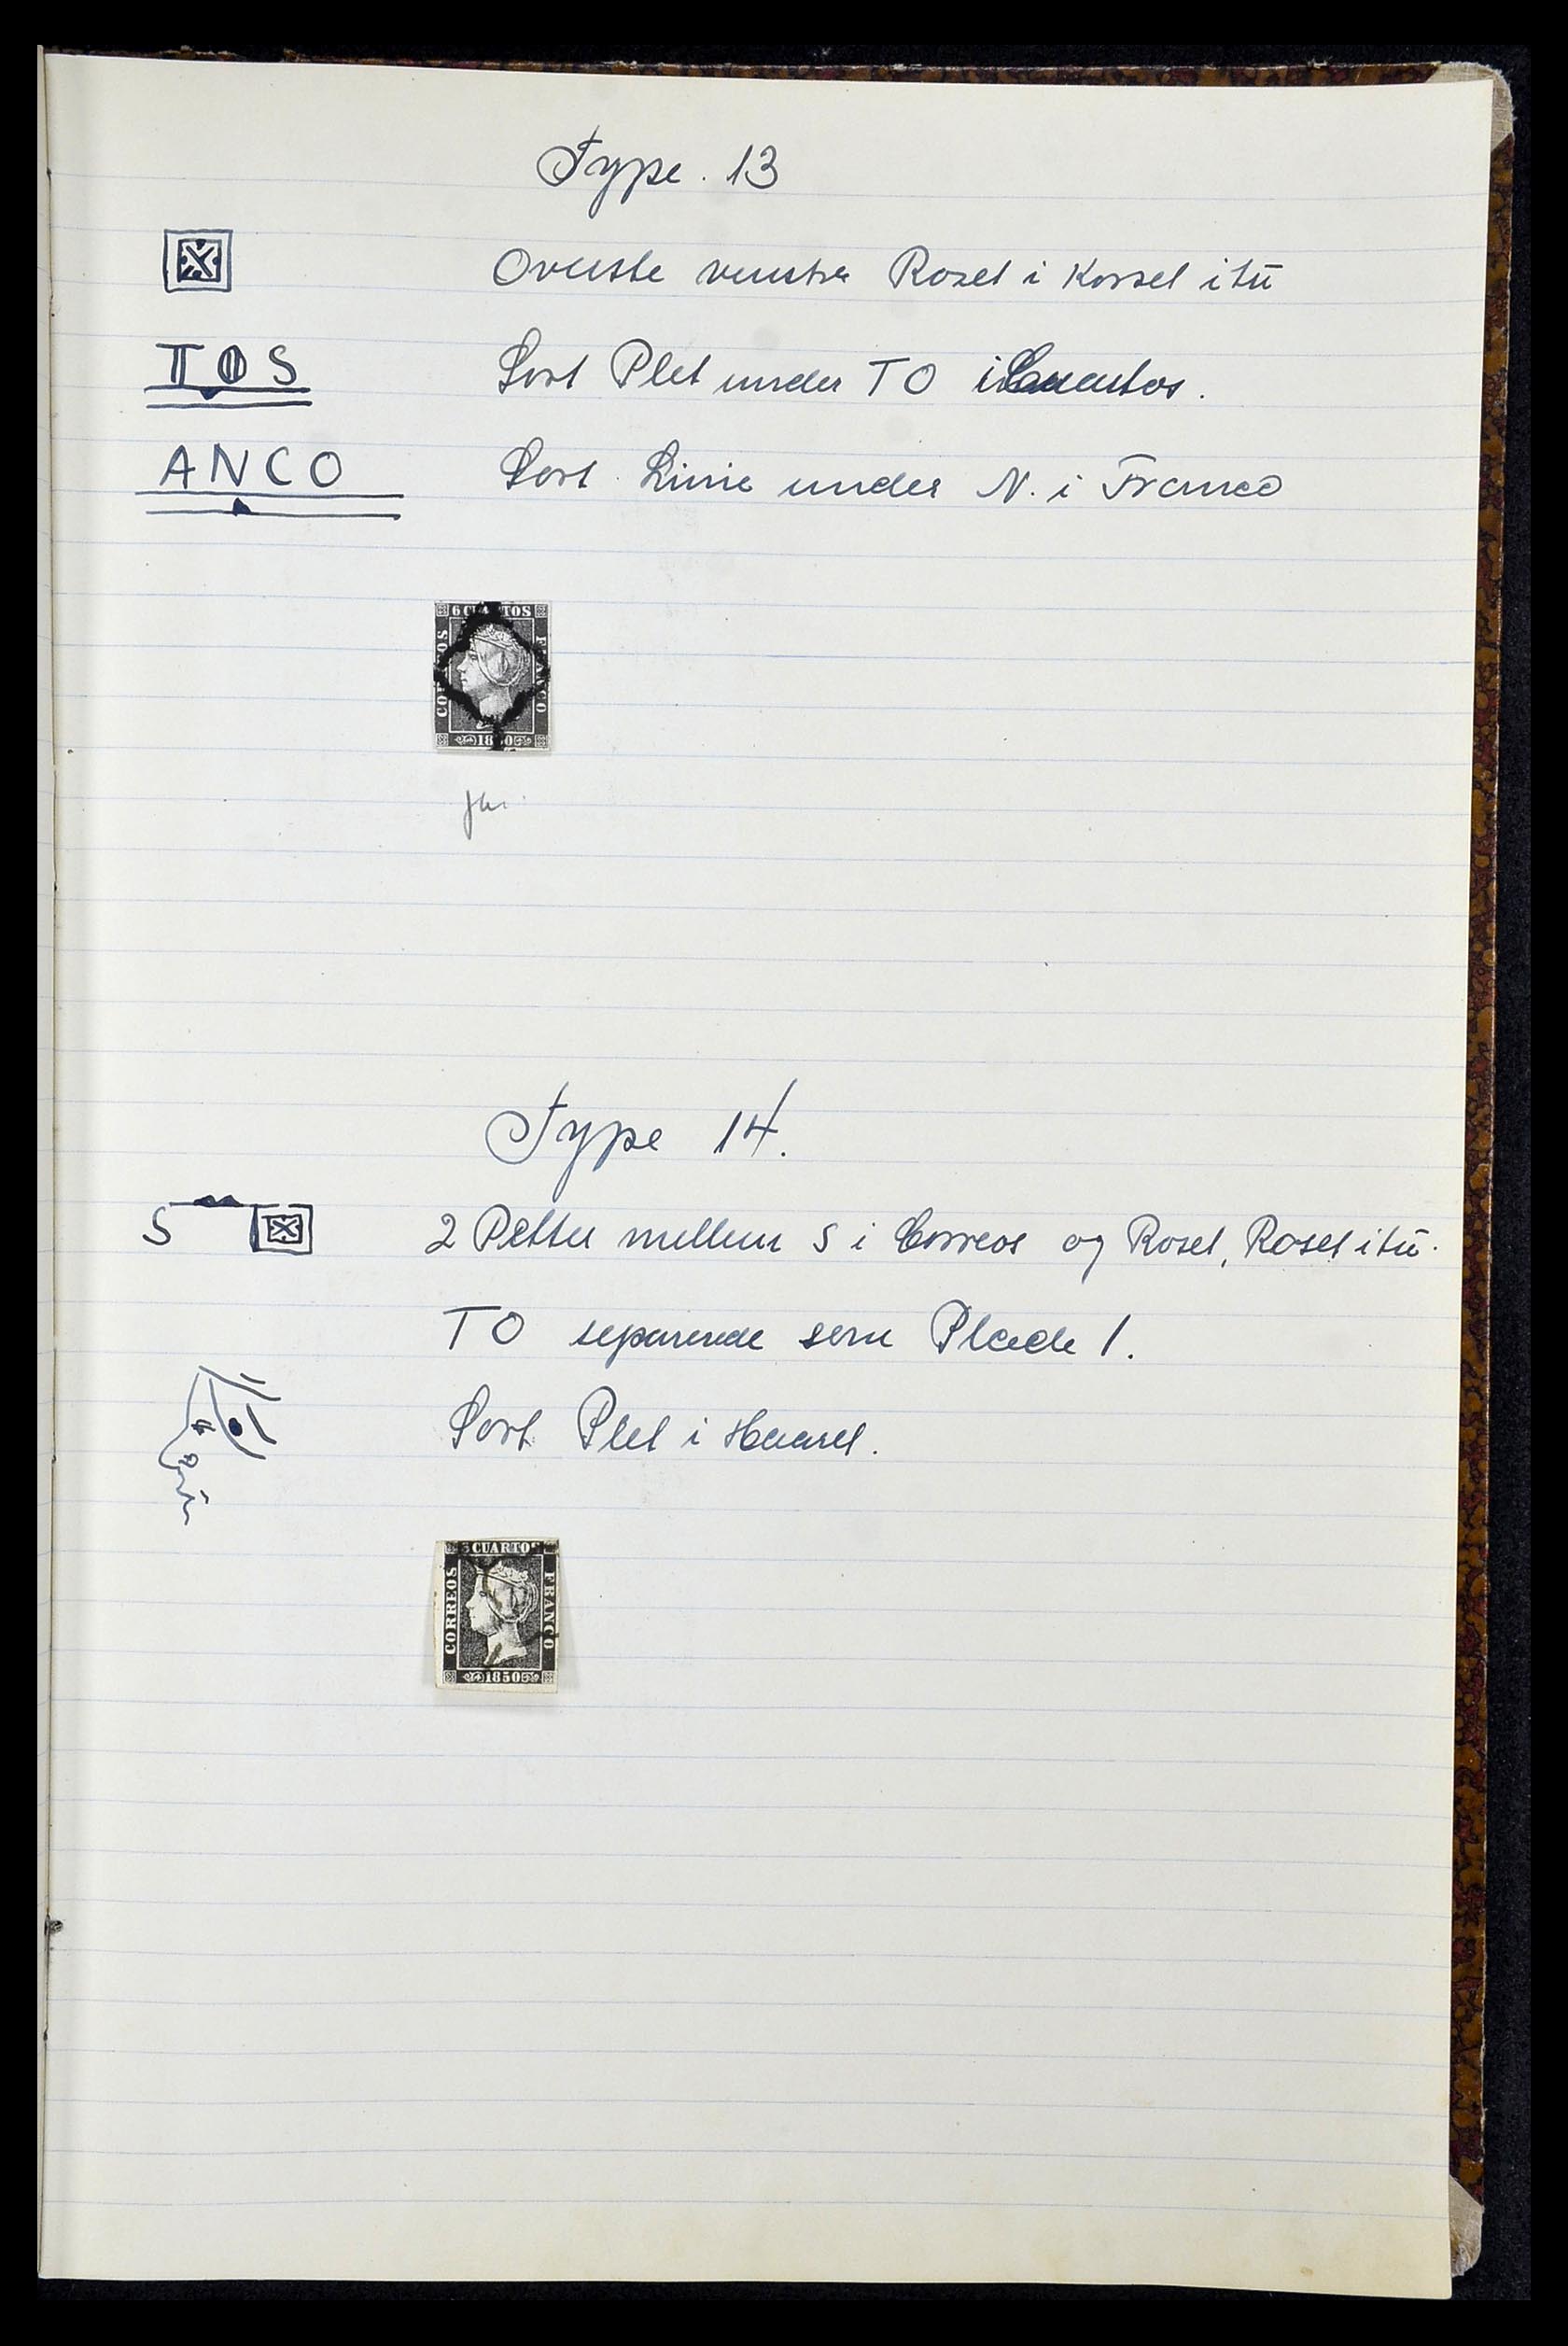 Type. 13
Øverste venstre Roset i Korset itu
TOS
Sort Plet under TO i Cuartos.
ANCO
Sort Linie under N. i Franco
6 CUARTOS
CORREOS
FRANCO
1850
ja.
Type 14.
S
2 Pletter mellem S i Correos og Roset, Roset itu.
TO separerede som Plade 1.
Sort Plet i Haaret.
6 CUARTOS
CORREOS
FRANCO
1850